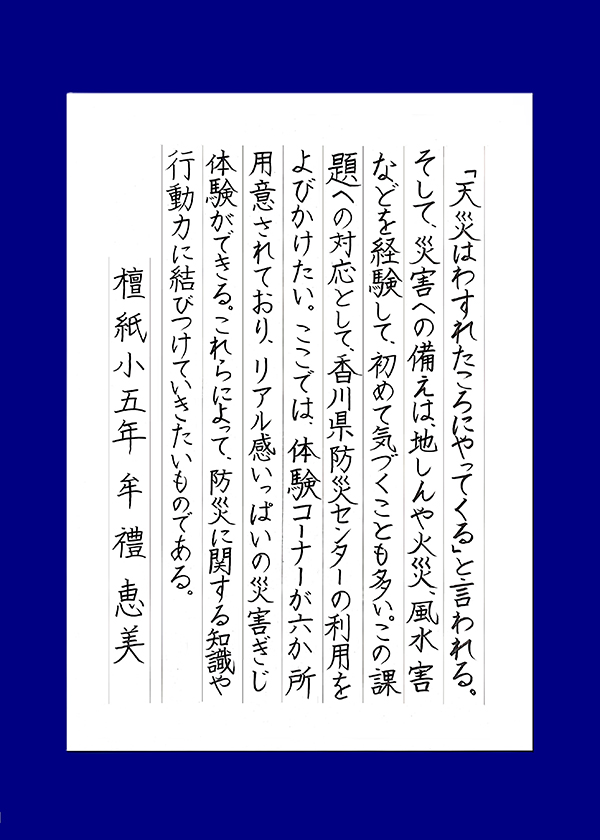 「天災はわすれたころにやってくる」と言われる。
そして、災害への備えは、地しんや火災、風水害
などを経験して、初めて気づくことも多い。この課
題への対応として、香川県防災センターの利用を
よびかけたい。ここでは、体験コーナーが六か所
用意されており、リアル感いっぱいの災害ぎじ
体験ができる。これらによって、防災に関する知識や
行動力に結びつけていきたいものである。
檀紙小五年 牟禮恵美